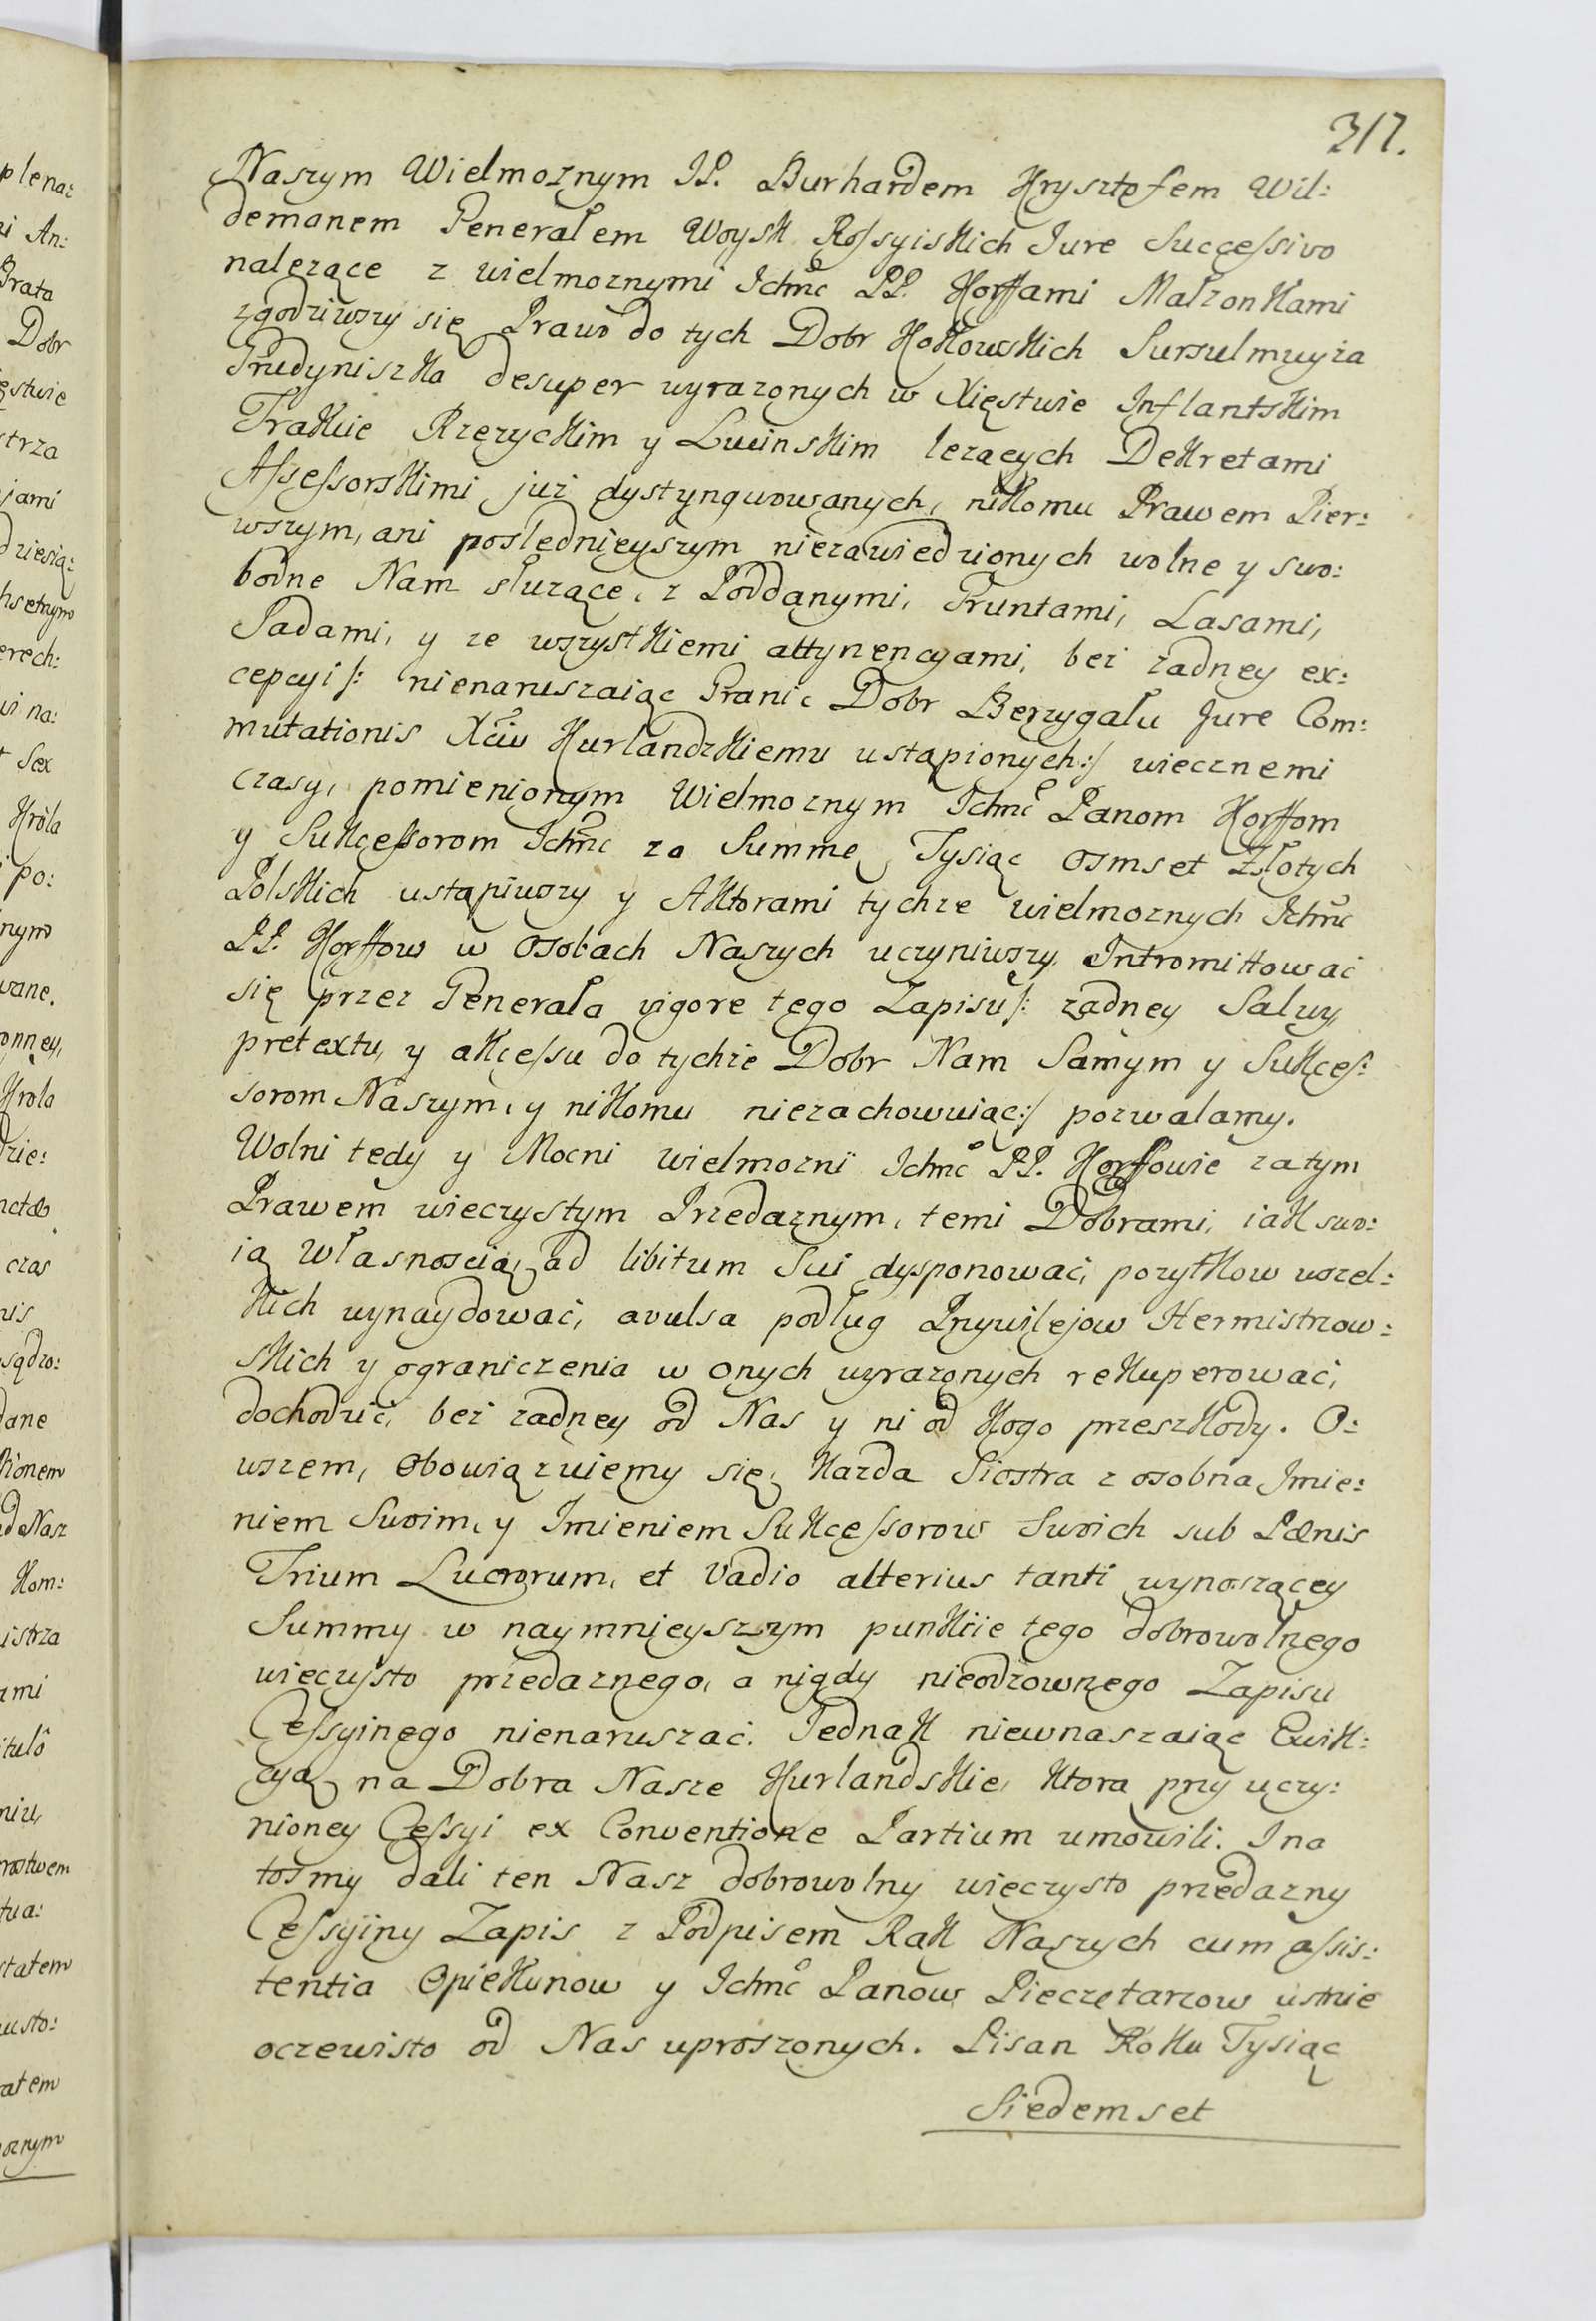 317.
Naszym Wielmożnym JP. Burhardem Krysztofem Wil:
demanem Generałem Woysk Rossyiskich Jure Successivo
należące z wielmożnymi Ichmć PP. Korffami Małżonkami
zgodziwszy się Prawo do tych Dobr Kokowskich Sursulmuyża
Grudyniszka desuper wyrażonych w Xięstwie Inflantskim
Trakcie Rzeżyckim y Lucinskim leżących Dekretami
Assessorskimi już dystyngwowanych, nikomu Prawem Pier:
wszym, ani poslednieyszym niezawiedzionych wolne y swo:
bodne Nam służące, z Poddanymi, Gruntami, Lasami,
Sadami, y ze wszystkiemi attynencyami, bez żadney ex:
cepcyi /: nienaruszaiąc Granic Dobr Berzygału Jure Com:
mutationis Xciu Kurlandzkiemu ustąpionych :/ wiecznemi
czasy, pomienionym Wielmoznym Ichmć Panom Korffom
y Sukcessorom Ichmć za Summę Tysiąc osmset Złotych
Polskich ustąpiwszy y Aktorami tychże wielmoznych Ichmć
PP. Korffow w osobach Naszych uczyniwszy Intromittować
się przez Generała vigore tego Zapisu /: żadney Salwy,
pretextu, y akcessu do tychże Dobr Nam Samym y Sukces:
sorom Naszym, y nikomu niezachowuiąc :/ pozwalamy.
Wolni tedy y Mocni wielmozni Ichmć PP. Korffowie za tym
Prawem wieczystym Przedaznym, temi Dobrami, iak swo:
ią własnoscią, ad libitum Sui dysponować, pozytkow wszel:
kich wynaydować, avulsa podług Przywilejow Hermistrzow:
skich y ograniczenia w onych wyrazonych rekuperować,
dochodzić, bez żadney od Nas y ni od kogo przeszkody. O:
wszem, obowiązuiemy się, kazda Siostra z osobna Imie:
niem Swoim, y Imieniem Sukcessorow Swoich sub Pœnis
Trium Lucrorum, et Vadio alterius tanti wynoszącey
Summy w naymnieyszym punkcie tego dobrowolnego
wieczysto przedaznego, a nigdy nieodzownego Zapisu
Cessyinego nienaruszać. Jednak niewnaszaiąc Ewik:
cyą na Dobra Nasze Kurlandskie, ktora przy uczy:
nioney Cessyi ex Conventione Partium umowili. I na
tośmy dali ten Nasz dobrowolny wieczysto przedazny
Cessyiny Zapis z Podpisem Rąk Naszych cum assis:
tentia Opiekunow y Ichmć Panow Pieczętarzow ustnie
oczewisto od Nas uproszonych. Pisan Roku Tysiąc
Siedemset